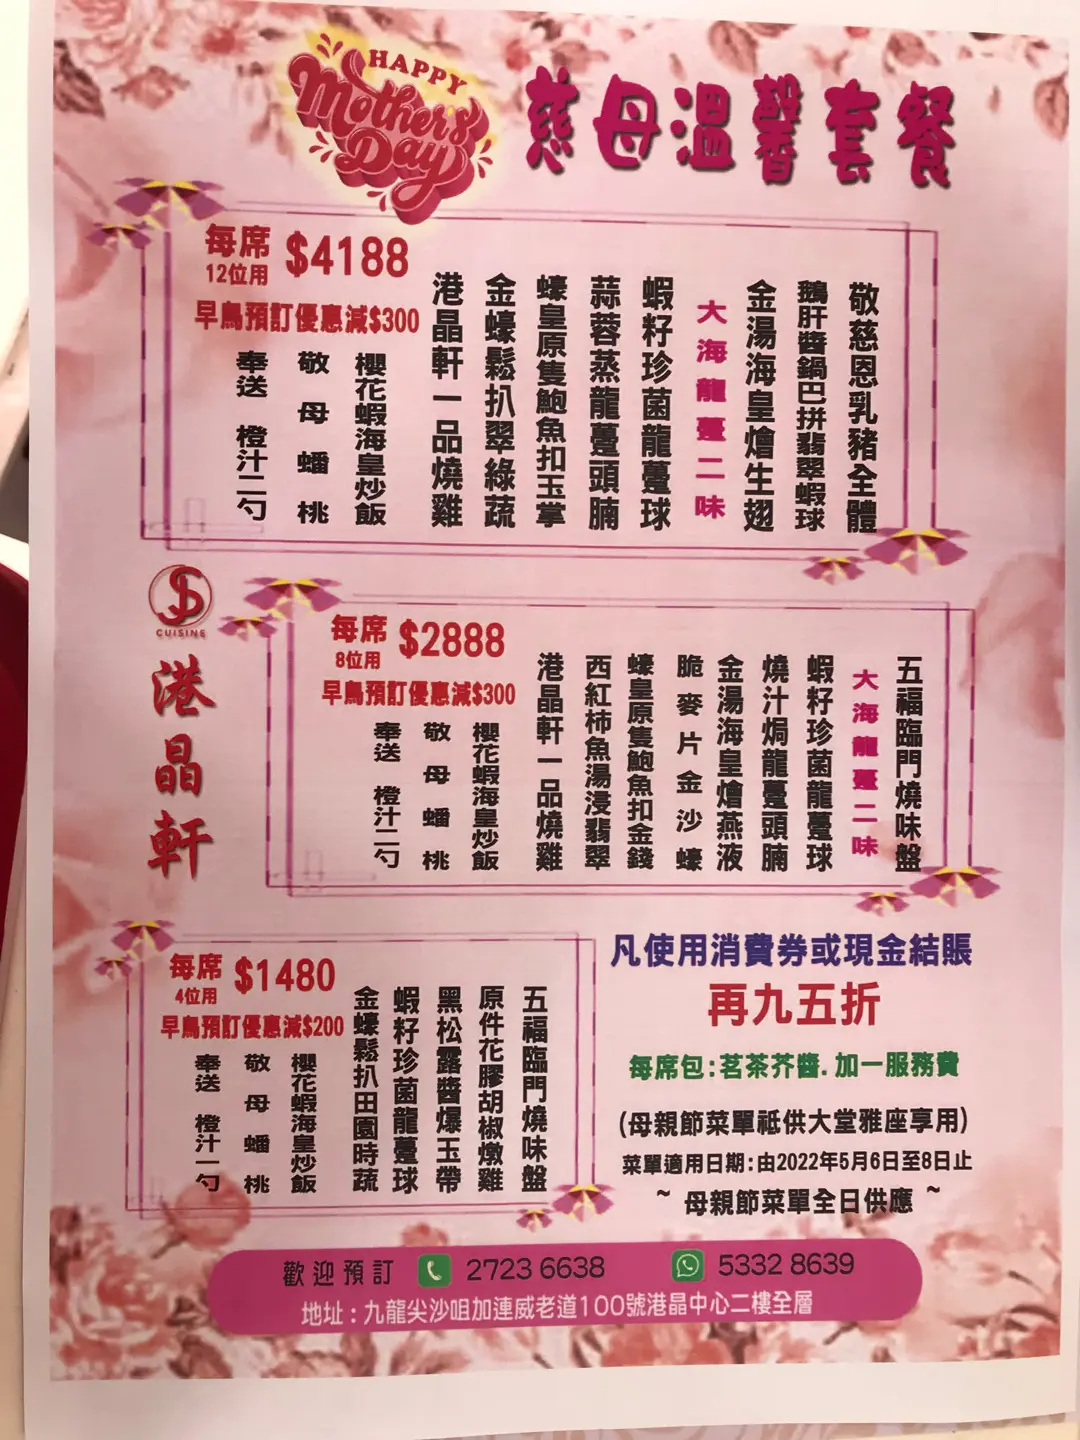 HAPPY
Mother's
Day
慈母溫馨套餐
每席 $4188
12位用
早鳥預訂優惠減$300
敬慈恩乳豬全體
鵝肝醬鍋巴拼翡翠蝦球
金湯海皇燴生翅
大海龍躉二味
蝦籽珍菌龍躉球
蒜蓉蒸龍躉頭腩
蠔皇原隻鮑魚扣玉掌
金蠔鬆扒翠綠蔬
港晶軒一品燒雞
櫻花蝦海皇炒飯
敬母蟠桃
奉送 橙汁二勺
CUISINE
港晶軒
每席 $2888
8位用
早鳥預訂優惠減$300
五福臨門燒味盤
大海龍躉二味
蝦籽珍菌龍躉球
燒汁焗龍躉頭腩
金湯海皇燴燕液
脆麥片金沙蠔
蠔皇原隻鮑魚扣金錢
西紅柿魚湯浸翡翠
港晶軒一品燒雞
櫻花蝦海皇炒飯
敬母蟠桃
奉送 橙汁二勺
每席 $1480
4位用
早鳥預訂優惠減$200
五福臨門燒味盤
原件花膠胡椒燉雞
黑松露醬爆玉帶
蝦籽珍菌龍躉球
金蠔鬆扒田園時蔬
櫻花蝦海皇炒飯
敬母蟠桃
奉送 橙汁一勺
凡使用消費券或現金結賬
再九五折
每席包:茗茶芥醬.加一服務費
(母親節菜單祗供大堂雅座享用)
菜單適用日期:由2022年5月6日至8日止
~ 母親節菜單全日供應 ~
歡迎預訂 2723 6638 5332 8639
地址:九龍尖沙咀加連威老道100號港晶中心二樓全層